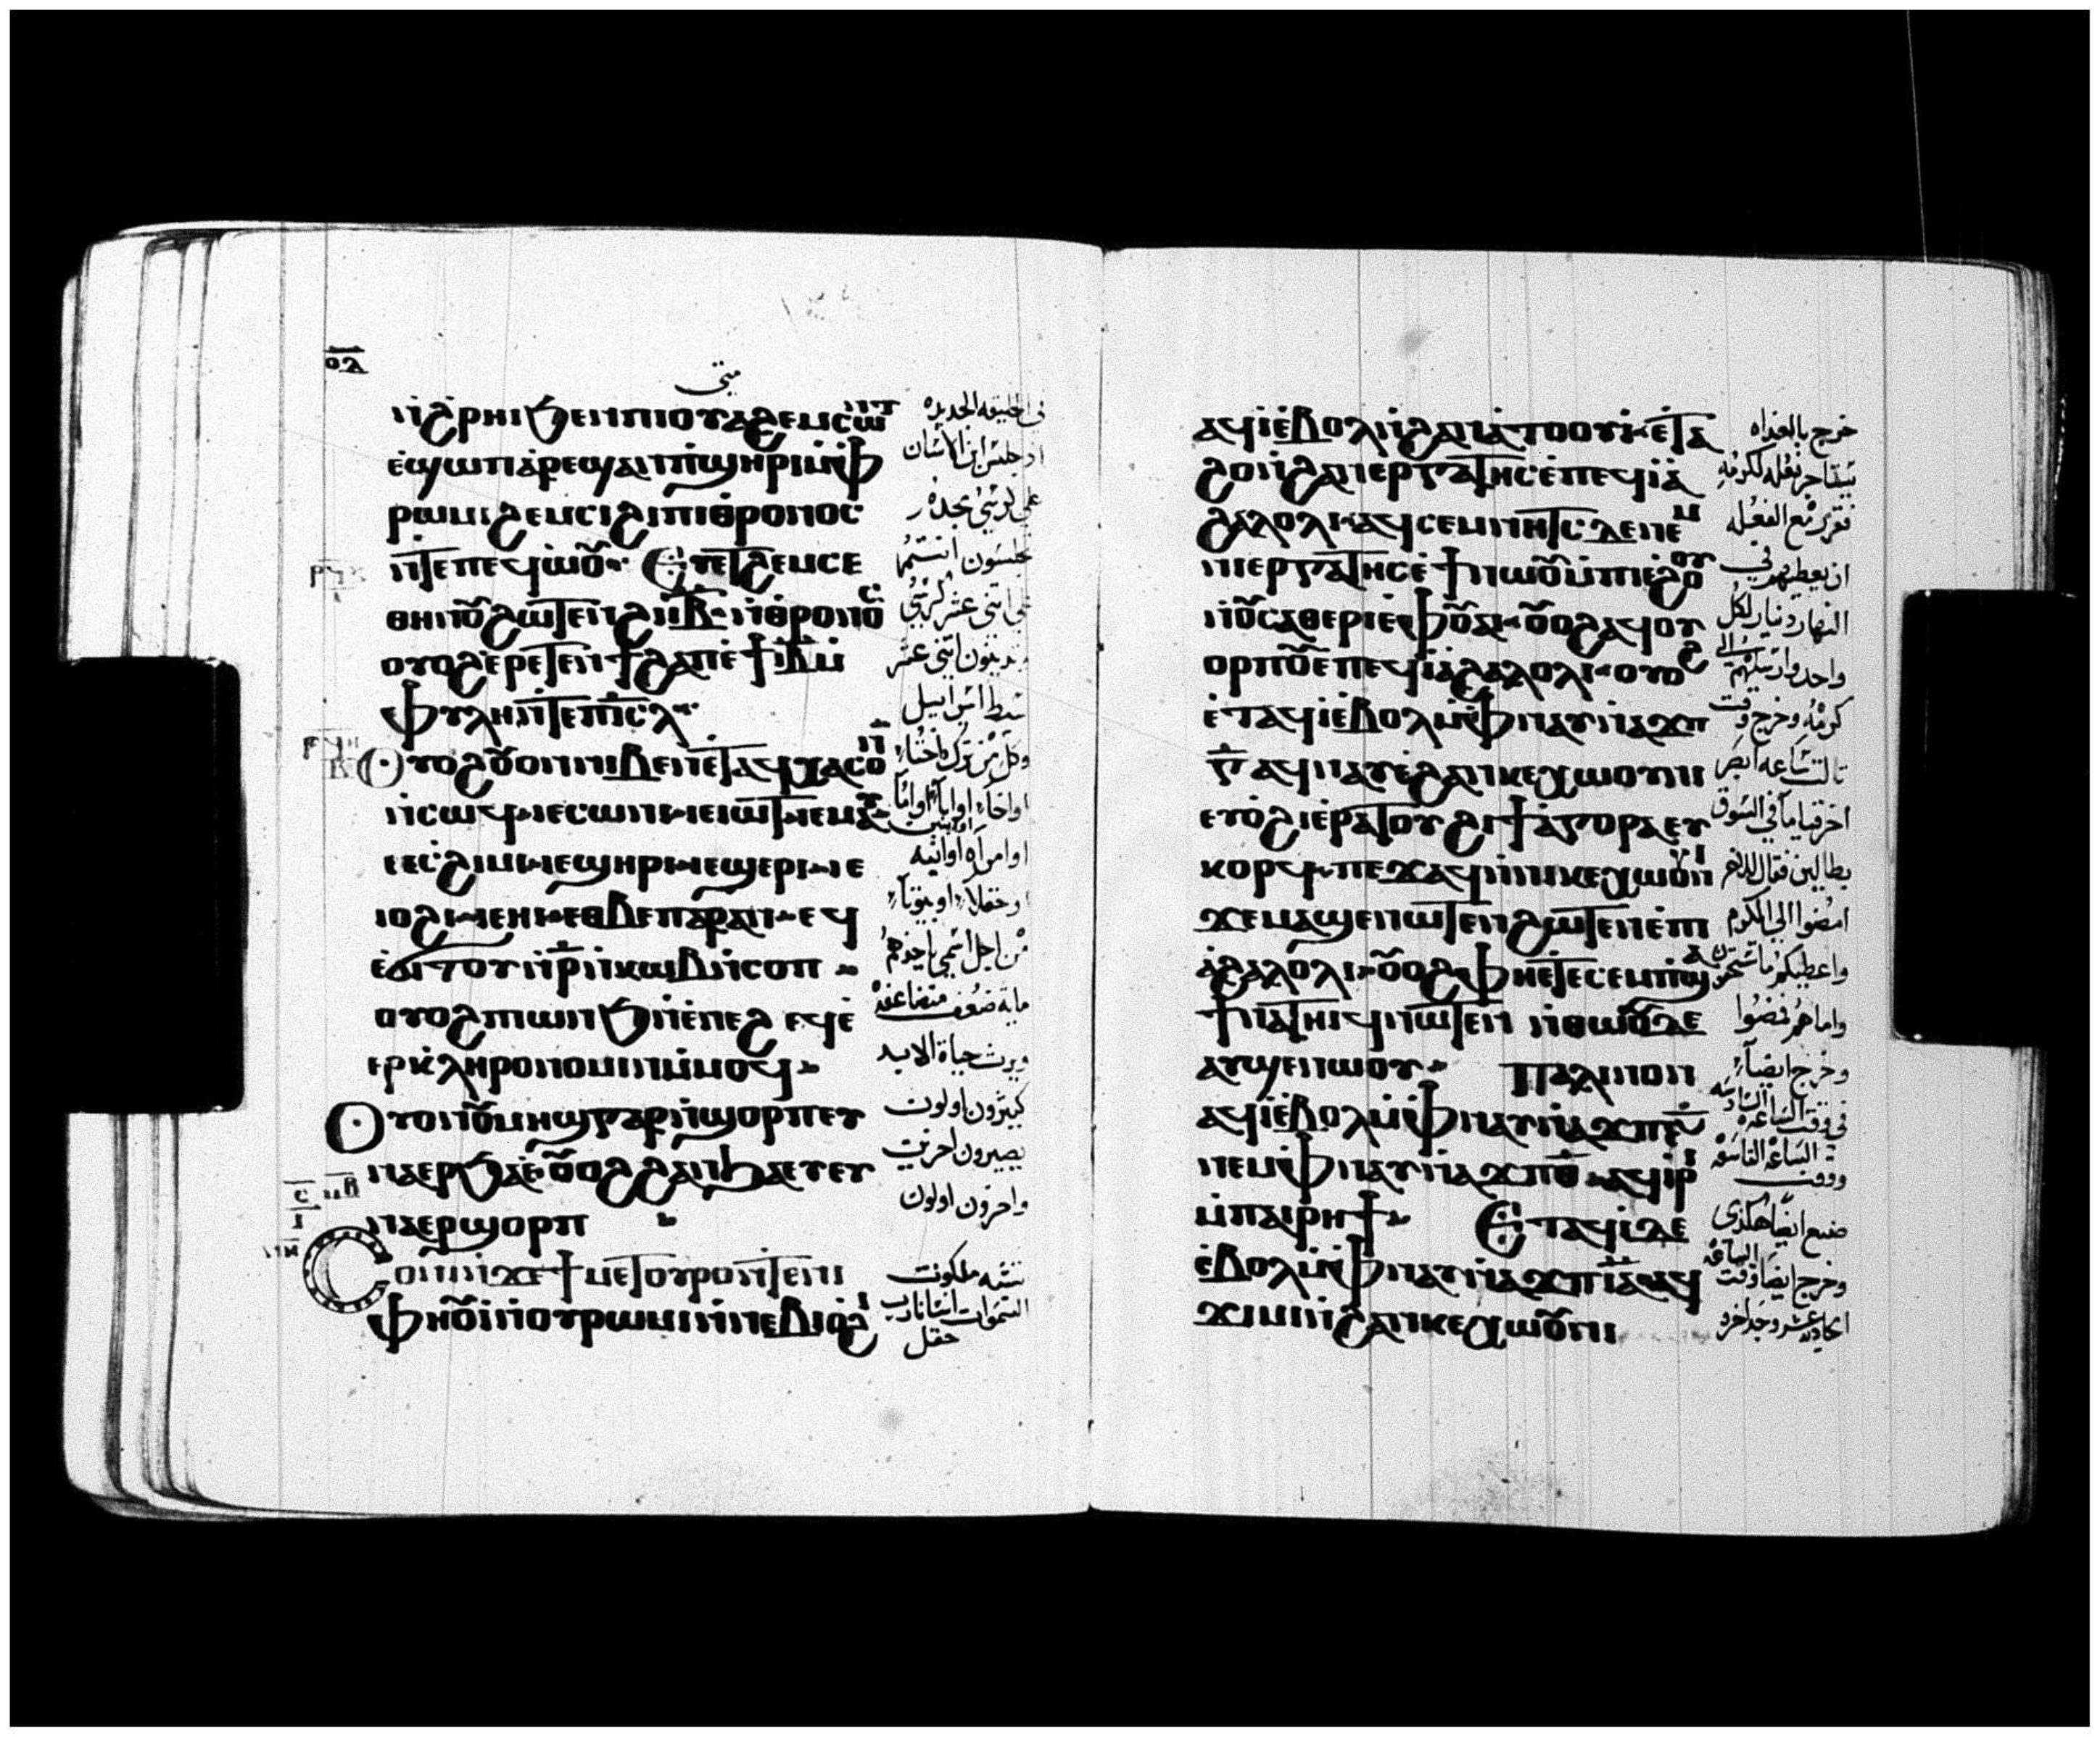 ⲟⲗ
متى
ⲛ̇ϩⲣⲏⲓϧⲉⲛⲡⲓⲟⲩⲁϩⲉⲙⲥⲱⲛⲧ
ⲉϣⲱⲡⲁⲣⲉϣⲁⲛⲡ̇ϣⲏⲣⲓⲙ̇ⲫ
ⲣⲱⲙⲓϩⲉⲙⲥⲓϩⲓⲡⲓⲑⲣⲟⲛⲟⲥ
ⲛ̇ⲧⲉⲡⲉϥⲱ̇ⲟⲩ· Ⲉⲣⲉⲧⲉⲛϩⲉⲙⲥⲉ
ⲑⲏⲛⲟⲩϩⲱⲧⲉⲛϩⲓⲓ̅ⲃ̅ⲛ̇ⲑⲣⲟⲛⲟⲥ
ⲟⲩⲟϩⲉ̇ⲣⲉⲧⲉⲛϯϩⲁⲡⲉ̇ϯⲓ̅ⲃ̅ⲙ̇
ⲫⲩⲗⲏⲛ̇ⲧⲉⲡⲓ̅ⲥ̅ⲗ̅
Ⲟⲩⲟϩⲟⲩⲟⲛⲛⲓⲃⲉⲛⲉⲧⲁϥⲭⲁⲥⲟⲛ
ⲛ̇ⲥⲱϥⲓⲉⲥⲱⲛⲓⲓⲉⲓⲱⲧⲓⲉⲙⲁⲩ
ⲓⲉⲥϩⲓⲙⲓⲓⲉϣⲏⲣⲓⲓⲉϣⲉⲣⲓⲓⲉ
ⲓⲟϩⲓⲓⲉⲏⲓⲉⲑⲃⲉⲡⲁⲣⲁⲛⲉϥ
ⲉ̇ϭⲓⲧⲟⲩⲛ̇ⲣ̅ⲛ̇ⲕⲱⲃⲛ̇ⲥⲟⲡ
ⲟⲩⲟϩⲡⲓⲱⲛϧⲛ̇ⲉⲛⲉϩ ⲉϥⲉ̇
ⲉⲣⲕ̇ⲗⲏⲣⲟⲛⲟⲙⲓⲛⲙ̇ⲙⲟϥ
Ⲟⲩⲟⲛⲟⲩⲙⲏϣⲅⲁⲣⲛ̇ϣⲟⲣⲡⲉⲩ
ⲛⲁⲉⲣϧⲁⲉ̇ⲟⲩⲟϩϩⲁⲛϧⲁⲉⲩⲉⲩ
ⲛⲁⲉⲣϣⲟⲣⲡ
Ⲥⲟⲛⲓⲛϫⲉϯⲙⲉⲧⲟⲩⲣⲟⲛ̇ⲧⲉⲛⲓ
ⲫⲏⲟⲩⲓⲛ̇ⲟⲩⲣⲱⲙⲓⲛ̇ⲛⲉⲃⲓⲟϩⲓ
في الخليقه الجديده
اذ جلس ابن الانسان
على كرسي مجده
تجلسون انتم
على اثنى عشر كرسي
تدينون اثنى عشر
سبط اسراييل
وكل من ترك اخا
او اخاه او ابا او اما
او امراه او ابنيه
او حقلا او بيوتا
من اجل اسمي ياخذهم
مايه ضعف متضاعفه
ويرث حياة الابد
كثيرون اولون
يصيرون اخرين
واخرون اولون
تشبه ملكوت
السموات انسانا رب
حقل
ⲁϥⲓ̇ⲉ̇ⲃⲟⲗⲛ̇ϩⲁⲛⲁ̇ⲧⲟⲟⲩⲓ̇ⲉ̇ⲑⲁ
ϩⲟⲛ̇ϩⲁⲛⲉⲣⲅⲁⲧⲏⲥⲉ̇ⲡⲉϥⲓⲁ̇
ϩⲁⲗⲟⲗⲓⲁϥⲥⲉⲙⲛⲏⲧⲥⲇⲉⲛⲉⲙ
ⲛⲓⲉⲣⲅⲁⲧⲏⲥⲉ̇ϯⲛⲱⲟⲩⲙ̇ⲡⲓⲉ̇ϩⲟⲟⲩ
ⲛ̇ⲟⲩⲥⲁⲑⲉⲣⲓⲉ̇ⲫⲟⲩⲁⲓⲟⲩⲟϩⲁϥⲟⲩ
ⲟⲣⲡⲟⲩⲉ̇ⲡⲉϥⲓⲁ̇ϩⲁⲗⲟⲗⲓⲟⲩⲟϩ
ⲉ̇ⲧⲁϥⲓ̇ⲉ̇ⲃⲟⲗⲙ̇ⲫⲛⲁⲩⲛ̇ⲁϫⲡ
ⲅ̅ⲁϥⲛⲁⲩⲉ̇ϩⲁⲛⲕⲉⲭⲱⲟⲩⲛⲓ
ⲉⲩⲟ̇ϩⲓⲉ̇ⲣⲁⲧⲟⲩϩⲓϯⲁ̇ⲅⲟⲣⲁⲉⲩ
ⲕⲟⲣϥⲡⲉϫⲁϥⲛ̇ⲛⲓⲕⲉⲭⲱⲟⲩⲛⲓ
ϫⲉⲙⲁϣⲉⲛⲱⲧⲉⲛϩⲱⲧⲉⲛⲉ̇ⲡⲓ
ⲁ̇ϩⲁⲗⲟⲗⲓⲟⲩⲟϩⲫⲏⲉⲧⲉⲥⲉⲙⲡ̇ϣⲁ
ϯⲛⲁⲧⲏⲓϥⲛⲱⲧⲉⲛ ⲛ̇ⲑⲱⲟⲩⲇⲉ
ⲁⲩϣⲉⲛⲱⲟⲩ Ⲡⲁⲗⲓⲛⲟⲛ
ⲁϥⲓ̇ⲉ̇ⲃⲟⲗⲙ̇ⲫⲛⲁⲩⲛ̇ⲁϫⲡⲋ̅
ⲛⲉⲙⲫⲛⲁⲩⲛ̇ⲁϫⲡⲑ̅ⲁϥⲓⲣⲓ
ⲙ̇ⲡⲁⲓⲣⲏϯ Ⲉⲧⲁϥⲓ̇ⲇⲉ
ⲉ̇ⲃⲟⲗⲙ̇ⲫⲛⲁⲩⲛ̇ⲁϫⲡⲓ̅ⲁ̅ⲁϥ
ϫⲓⲙⲓⲛ̇ϩⲁⲛⲕⲉⲭⲱⲟⲩⲛⲓ
خرج بالغداه
يستاجر فعله لكرمه
فقرر مع الفعله
ان يعطيهم في
النهار دينار لكل
واحد وارسلهم الى
كرمه وخرج وقت
ثالث ساعه ابصر
اخر قياما في السوق
بطالين فقال للاخر
امضوا الى الكرم
واعطيكم ما تستحقون
واما هم فمضوا
وخرج ايضا
في وقت الساعه السادسه
ووقت الساعه التاسعه
صنع ايضا هكذى
وخرج ايضا وقت الساعه
الحاديه عشر وجد اخر